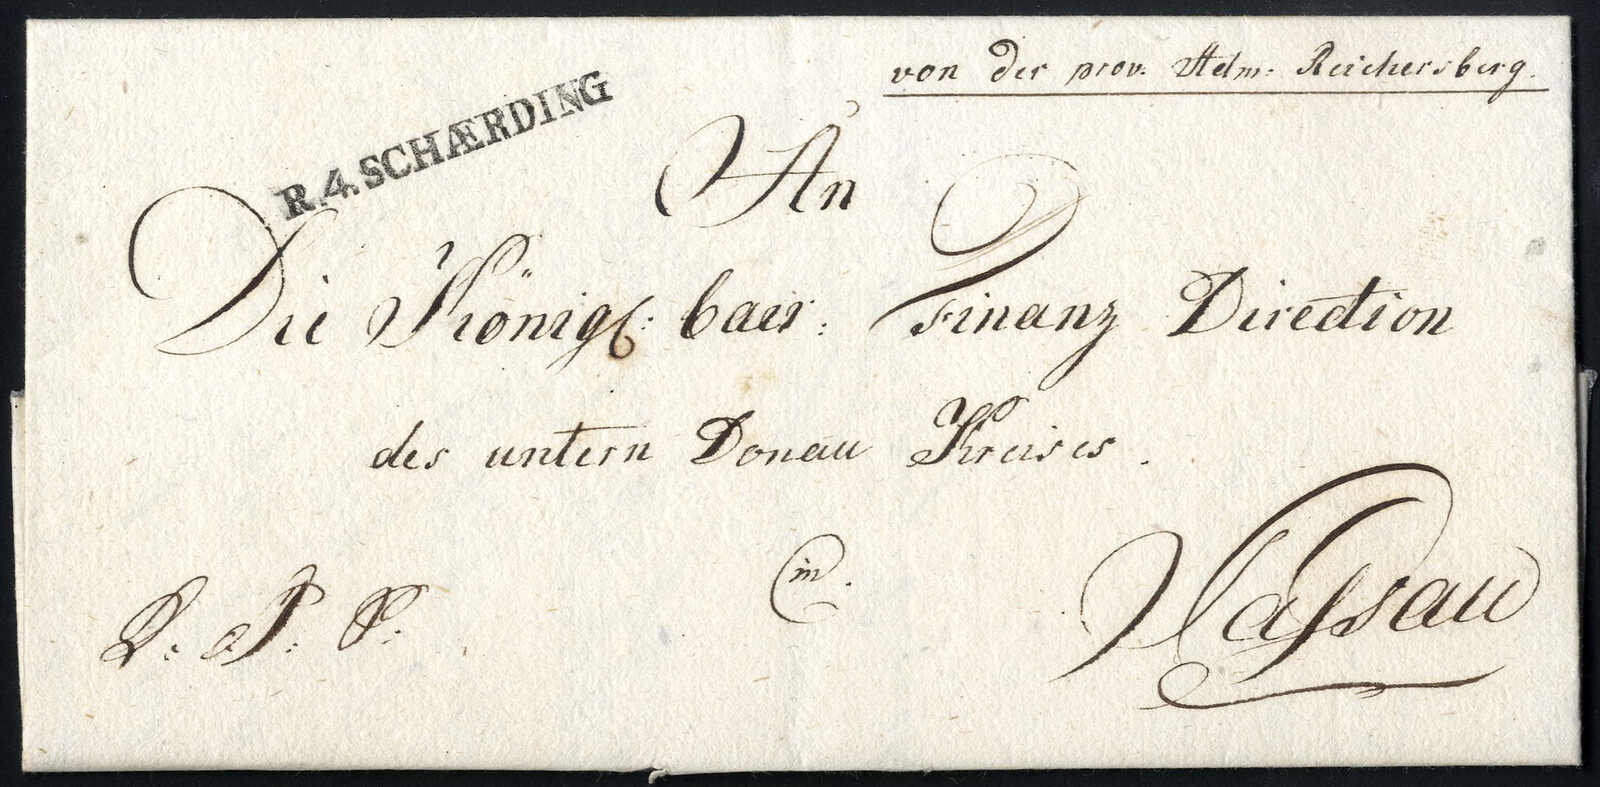 von der prov: Adm: Reichersberg.
R.4.SCHÆRDING
An
Die Königl: bair: Finanz Direction
des untern Donau Kreises.
in.
Passau